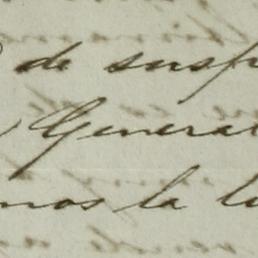 de susp
General
mos la lu